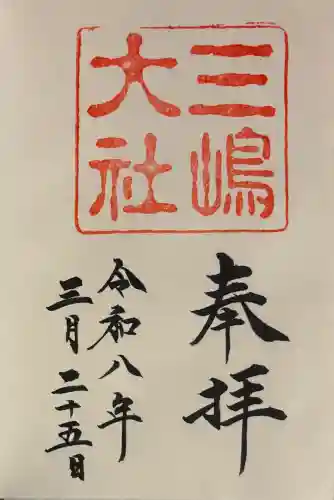 三嶋
大社
奉拝
令和八年
三月二十五日